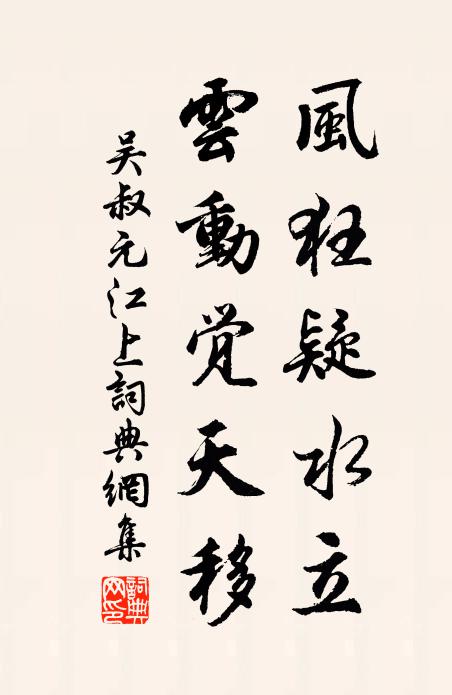 風狂疑水立
雲動覺天移
吴叔元江上詞典網集
詞典網印